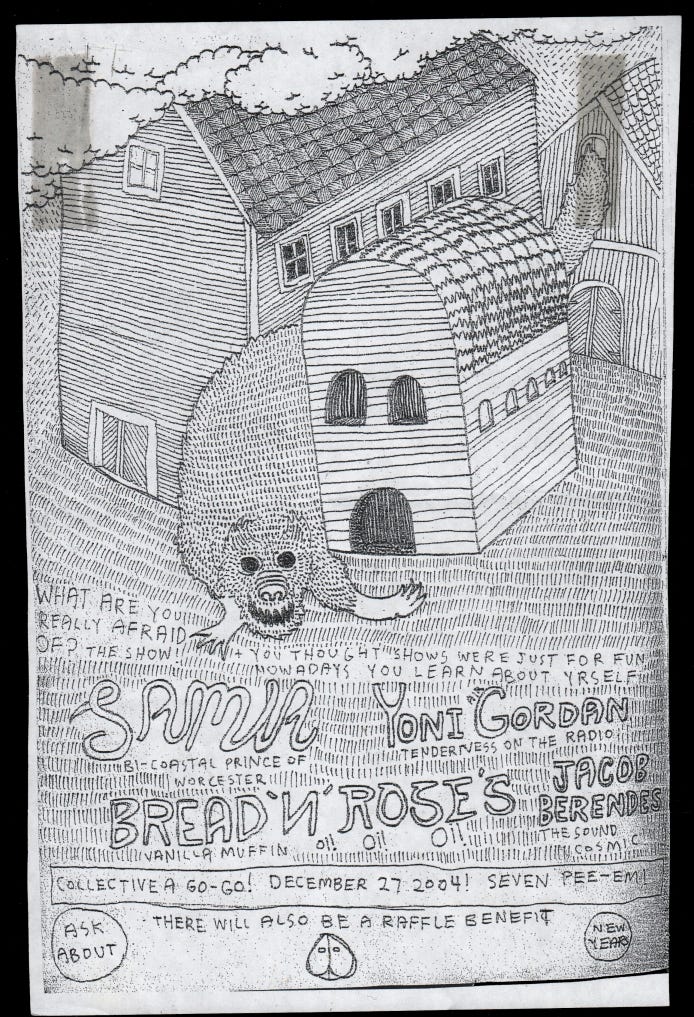 WHAT ARE YOU
REALLY AFRAID
OF? THE SHOW!
+ YOU THOUGHT SHOWS WERE JUST FOR FUN
NOWADAYS YOU LEARN ABOUT YRSELF
SAMIR
BI-COASTAL PRINCE OF
WORCESTER
YONI GORDAN
TENDERNESS ON THE RADIO
BREAD 'N' ROSE'S
VANILLA MUFFIN Oi! Oi! Oi!
JACOB
BERENDES
THE SOUND
COSMIC
COLLECTIVE A GO-GO! DECEMBER 27 2004! SEVEN PEE-EM!
THERE WILL ALSO BE A RAFFLE BENEFIT
ASK
ABOUT
NEW
YEARS